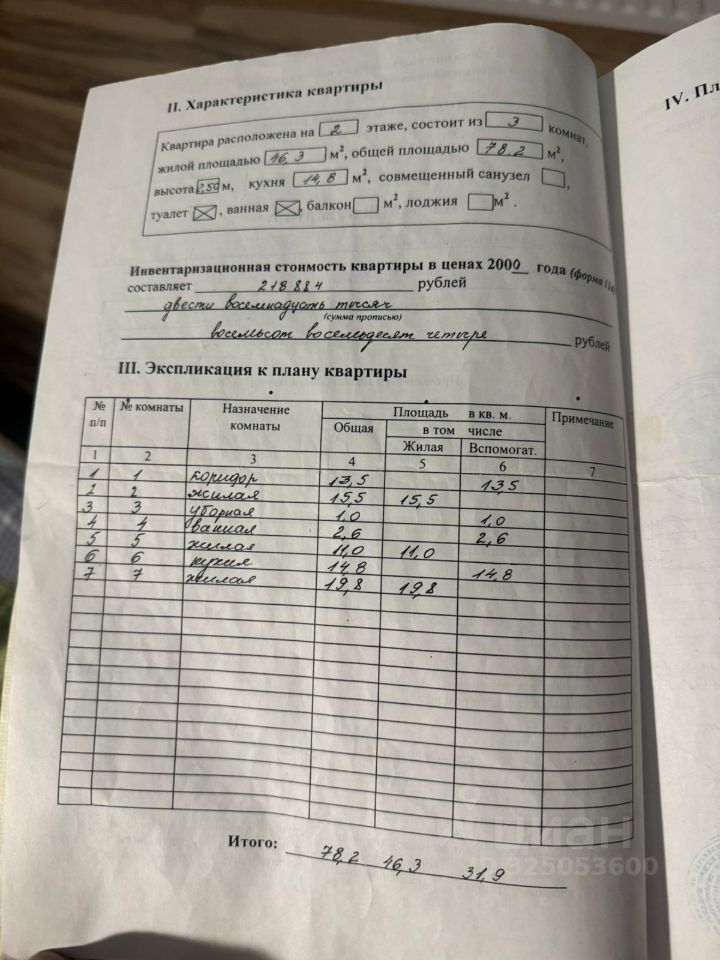 II. Характеристика квартиры
Квартира расположена на 2 этаже, состоит из 3 комнат,
жилой площадью 46,3 м², общей площадью 78.2 м²,
высота 2,50 м, кухня 14,8 м², совмещенный санузел ,
туалет , ванная , балкон м², лоджия м² .
Инвентаризационная стоимость квартиры в ценах 2000 года (форма 11а)
составляет 218 884 рублей
двести восемнадцать тысяч
(сумма прописью)
восемьсот восемьдесят четыре рублей
III. Экспликация к плану квартиры
№ п/п № комнаты Назначение комнаты Площадь в кв. м. Примечание
Общая в том числе
Жилая Вспомогат.
1 2 3 4 5 6 7
1 1 коридор 13,5 13,5
2 2 жилая 15,5 15,5
3 3 уборная 1,0 1,0
4 4 ванная 2,6 2,6
5 5 жилая 11,0 11,0
6 6 кухня 14,8 14,8
7 7 жилая 19,8 19,8
Итого: 78,2 46,3 31,9
IV. Пл
циан
325053600